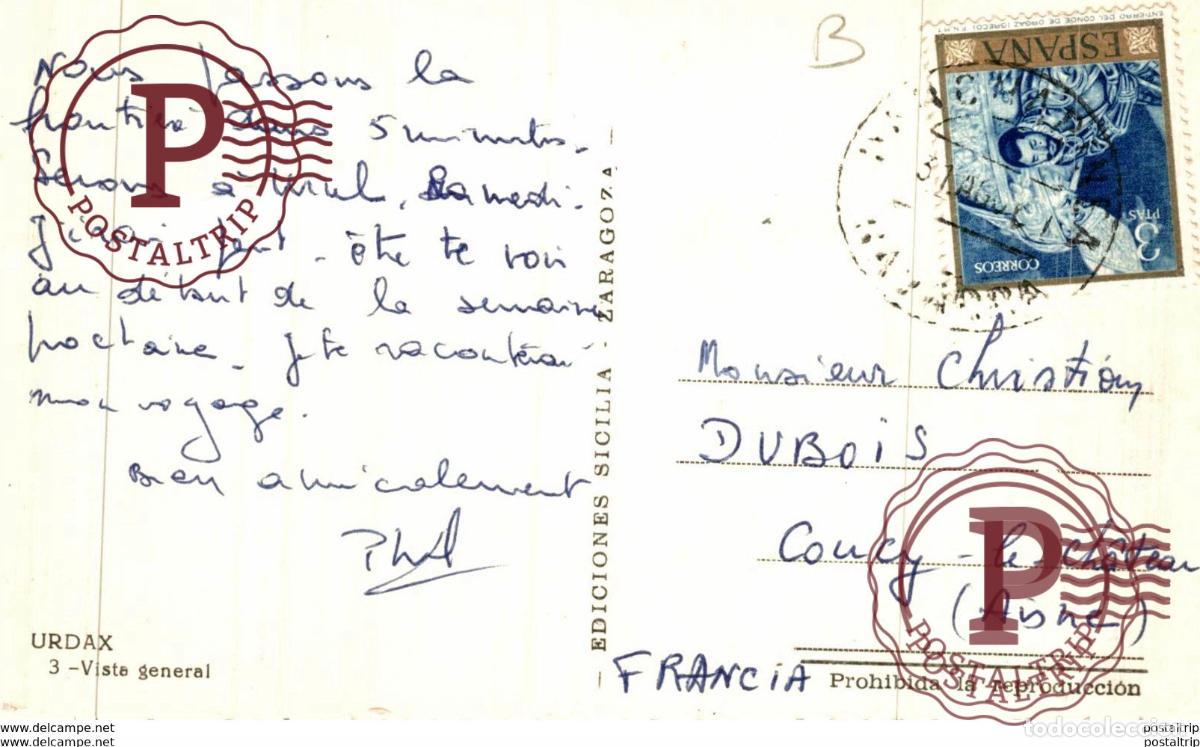 Nous passons la
frontière dans 5 minutes.
Serons à Samedi.
J' peut-être te voir
au début de la semaine
prochaine. Je te raconterai
mon voyage.
Bien amicalement
Phil
URDAX
3 -Vista general
EDICIONES SICILIA - ZARAGOZA
B
ENTIERRO DEL CONDE DE ORGAZ (GRECO) F.N.M.T
ESPAÑA
3
PTAS
CORREOS
NAVARRA
Monsieur Christian
DUBOIS
Coucy-le-château
(Aisne)
FRANCIA
Prohibida la reproducción
P
POSTALTRIP
P
POSTALTRIP
todocoleccion
www.delcampe.net
postaltrip
www.delcampe.net
postaltrip